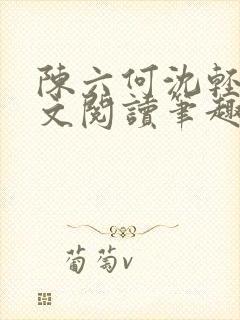 陳六何沈輕
文閱讀筆趣
葡萄v